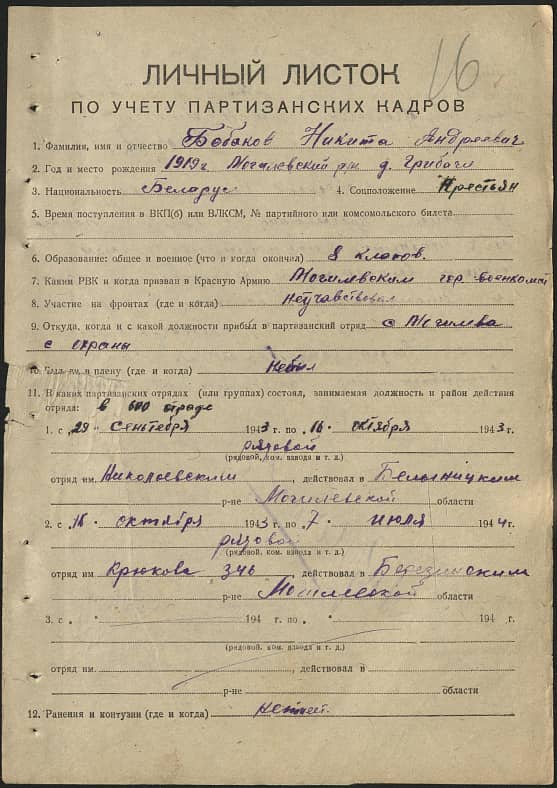 16
ЛИЧНЫЙ ЛИСТОК
ПО УЧЕТУ ПАРТИЗАНСКИХ КАДРОВ
1. Фамилия, имя и отчество Бобаков Никита Андреевич
2. Год и место рождения 1919г Могилевский р-н д. Грибачи
3. Национальность Беларус 4. Соцположение Крестьян
5. Время поступления в ВКП(б) или ВЛКСМ, № партийного или комсомольского билета
6. Образование: общее и военное (что и когда окончил) 8 класов.
7. Каким РВК и когда призван в Красную Армию Могилвским гор военкомат
8. Участие на фронтах (где и когда) Неучавствовал
9. Откуда, когда и с какой должности прибыл в партизанский отряд с Могилва
с охраны
10. Был ли в плену (где и когда) Небыл
11. В каких партизанских отрядах (или группах) состоял, занимаемая должность и район действия
отряда: в 600 отраде
1. с „29“ Сентебря 1943 г. по „16“ октября 1943 г.
рядовой
(рядовой, ком. взвода и т. д.)
отряд им. Николаевским, действовал в Белыницким
р-не Могилевской области
2. с „16“ октября 1943 г. по „7“ июля 1944 г.
рядовой
(рядовой, ком. взвода и т. д.)
отряд им Крюкова 346, действовал в Березинским
р-не Могилевской области
3. с „ “ 194 г. по „ “ 194 г.
(рядовой, ком. взвода и т. д.)
отряд им. , действовал в
р-не области
12. Ранения и контузии (где и когда)